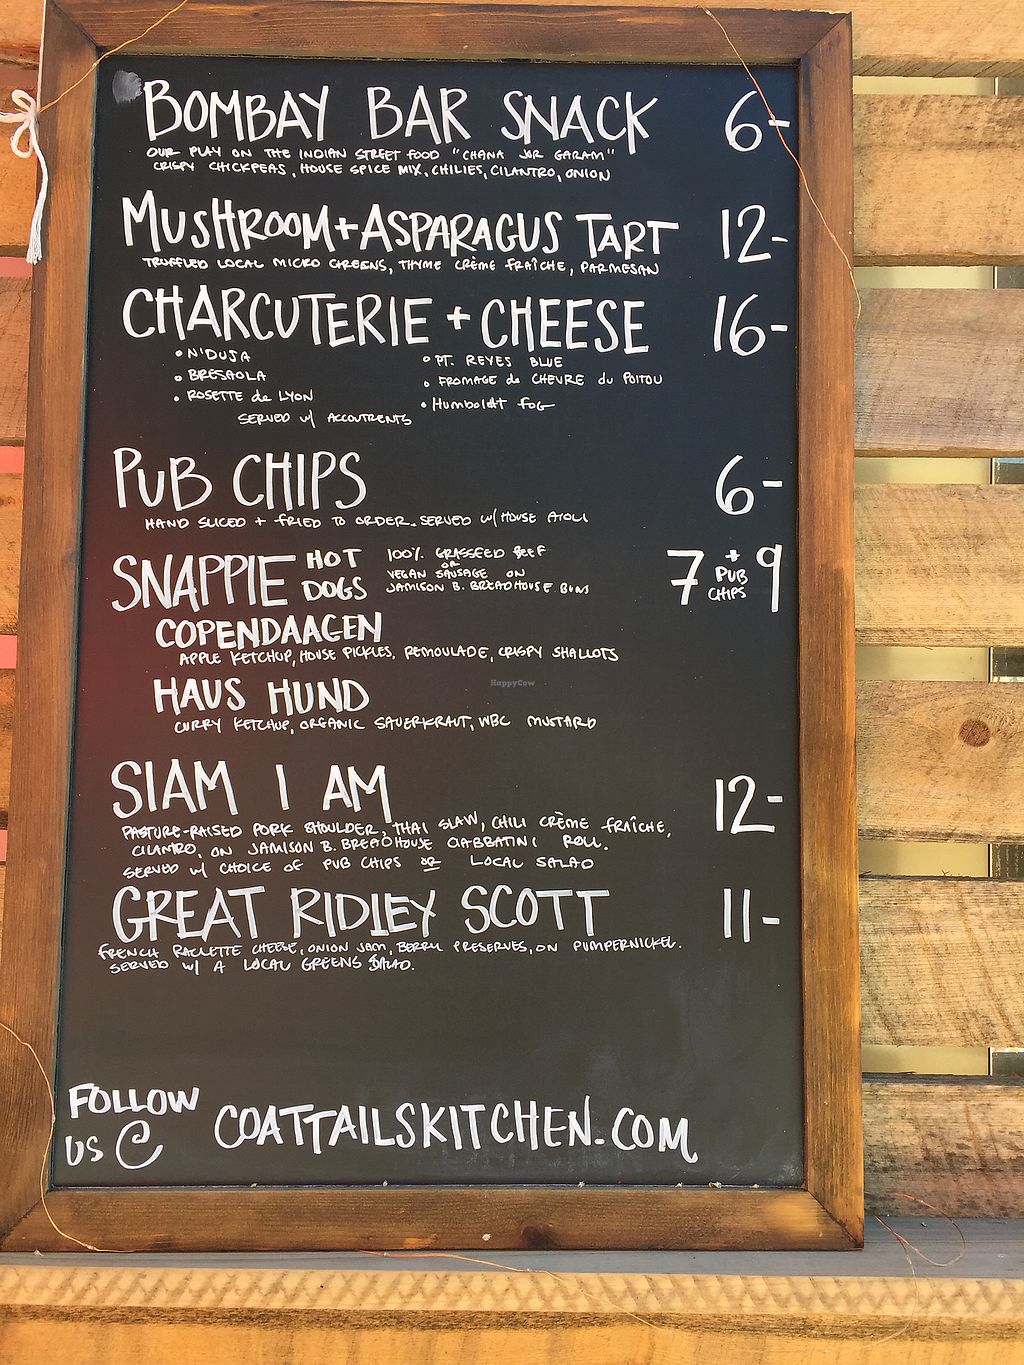 BOMBAY BAR SNACK 6-
OUR PLAY ON THE INDIAN STREET FOOD "CHANA JOR GARAM"
CRISPY CHICKPEAS, HOUSE SPICE MIX, CHILIES, CILANTRO, ONION
MUSHROOM + ASPARAGUS TART 12-
TRUFFLED LOCAL MICRO GREENS, THYME CRÈME FRAÎCHE, PARMESAN
CHARCUTERIE + CHEESE 16-
• N'DUJA
• BRESAOLA
• ROSETTE de LYON
• PT. REYES BLUE
• FROMAGE de CHEVRE du POITOU
• HUMBOLDT FOG
SERVED w/ ACCOUTRENTS
PUB CHIPS 6-
HAND SLICED + FRIED TO ORDER. SERVED w/ HOUSE AIOLI
SNAPPIE HOT DOGS
100% GRASSFED BEEF
OR
VEGAN SAUSAGE ON
JAMISON B. BREADHOUSE BUNS
7 + PUB CHIPS 9
COPENDAAGEN
APPLE KETCHUP, HOUSE PICKLES, REMOULADE, CRISPY SHALLOTS
HAUS HUND
CURRY KETCHUP, ORGANIC SAUERKRAUT, WBC MUSTARD
HappyCow
SIAM I AM 12-
PASTURE-RAISED PORK SHOULDER, THAI SLAW, CHILI CRÈME FRAÎCHE,
CILANTRO, ON JAMISON B. BREADHOUSE CIABBATINI ROLL.
SERVED w/ CHOICE OF PUB CHIPS OR LOCAL SALAD
GREAT RIDLEY SCOTT 11-
FRENCH RACLETTE CHEESE, ONION JAM, BERRY PRESERVES, ON PUMPERNICKEL.
SERVED w/ A LOCAL GREENS SALAD.
FOLLOW
US @ COATTAILSKITCHEN.COM